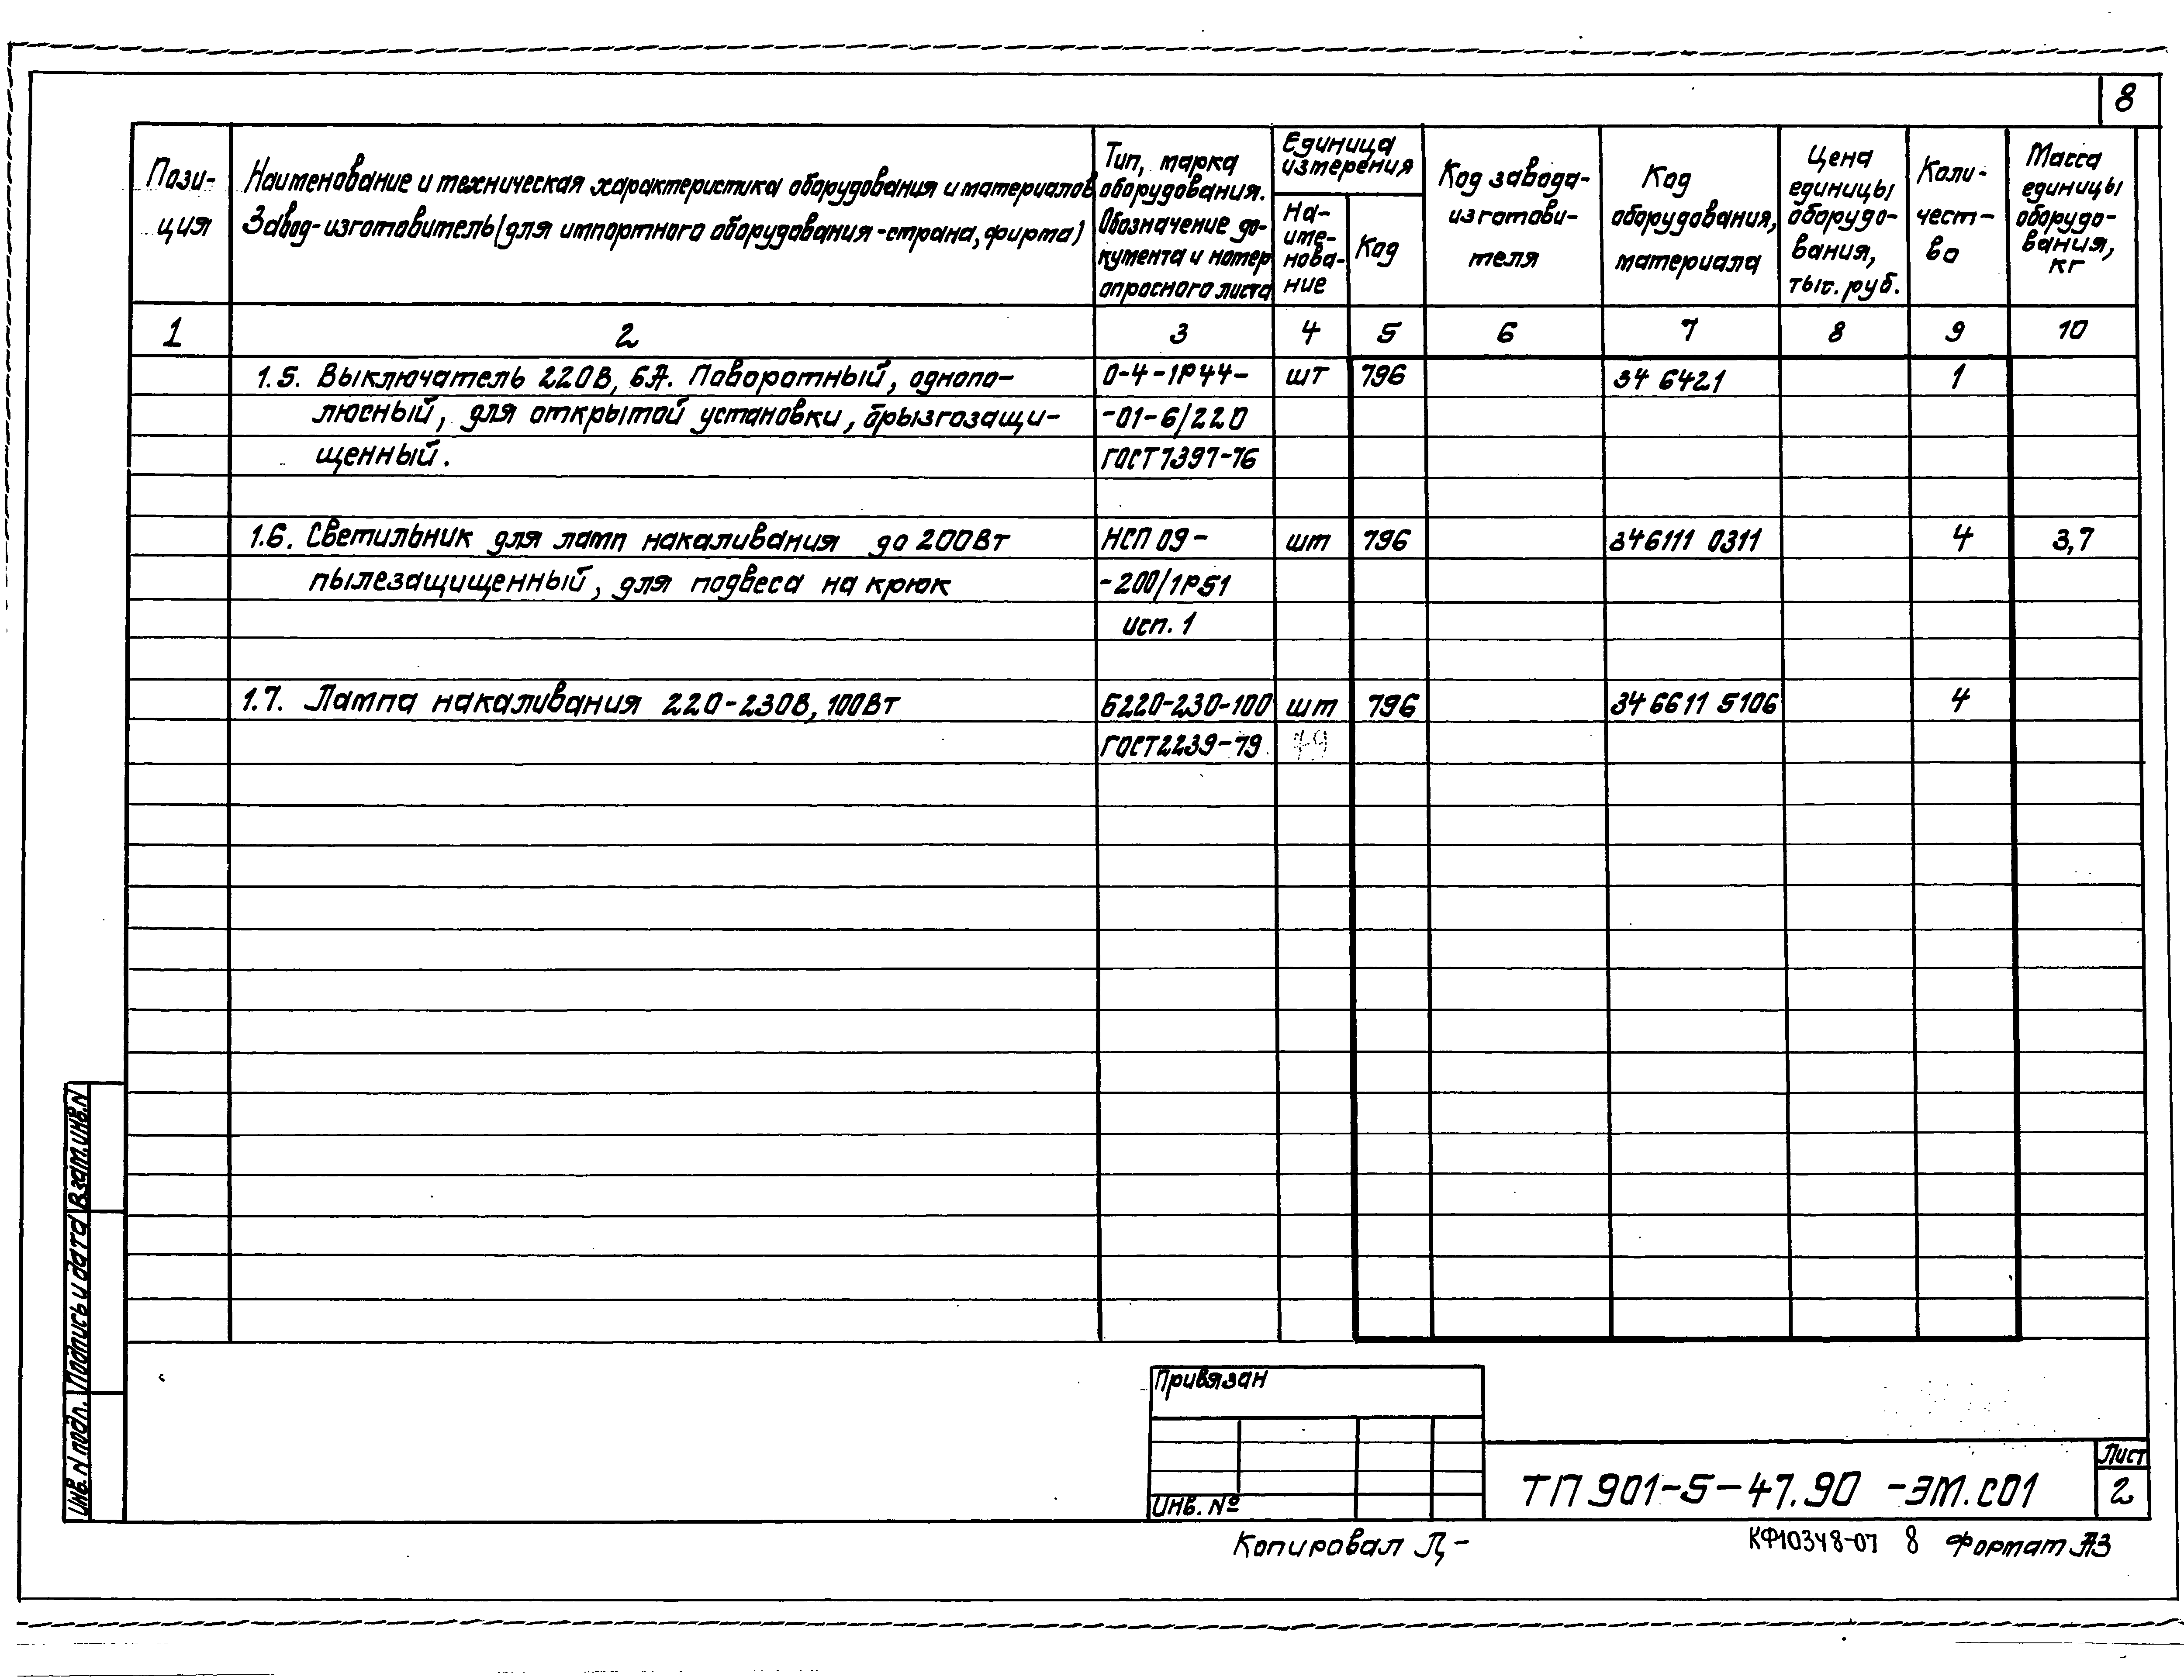 8
Пози-
ция
Наименование и техническая характеристика оборудования и материалов
Завод-изготовитель (для импортного оборудования-страна, фирма)
Тип, марка
оборудования.
Обозначение до-
кумента и номер
опросного листа
Единица
измерения
На-
име-
нова-
ние
Код
Код завода-
изготови-
теля
Код
оборудования,
материала
Цена
единицы
оборудо-
вания,
тыс. руб.
Коли-
чест-
во
Масса
единицы
оборудо-
вания,
кг
1 2 3 4 5 6 7 8 9 10
1.5. Выключатель 220В, 6А. Поворотный, однопо- 0-4-IP44- шт 796 34 6421 1
люсный, для открытой установки, брызгозащи- -01-6/220
щенный. ГОСТ 7397-76
1.6. Светильник для ламп накаливания до 200Вт НСП 09- шт 796 346111 0311 4 3,7
пылезащищенный, для подвеса на крюк -200/IP51
исп. 1
1.7. Лампа накаливания 220-230В, 100Вт Б220-230-100 шт 796 34 6611 5106 4
ГОСТ2239-79
Взам. инв. N
Подпись и дата
Инв. N подл.
Привязан
Инв. №
ТП 901-5-47.90 -ЭМ.С01
Лист
2
Копировал
КФ10348-07 8 Формат А3